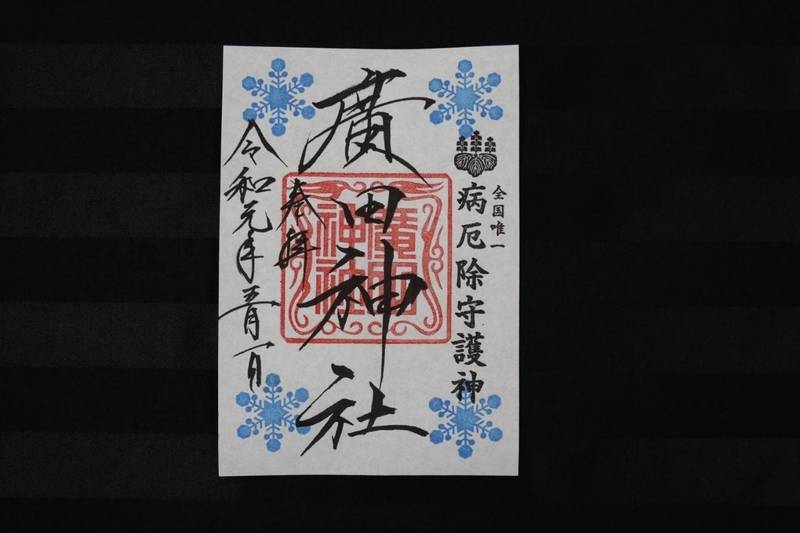 全国唯一
病厄除守護神
廣田神社
奉拝
廣田
神社
令和元年五月一日